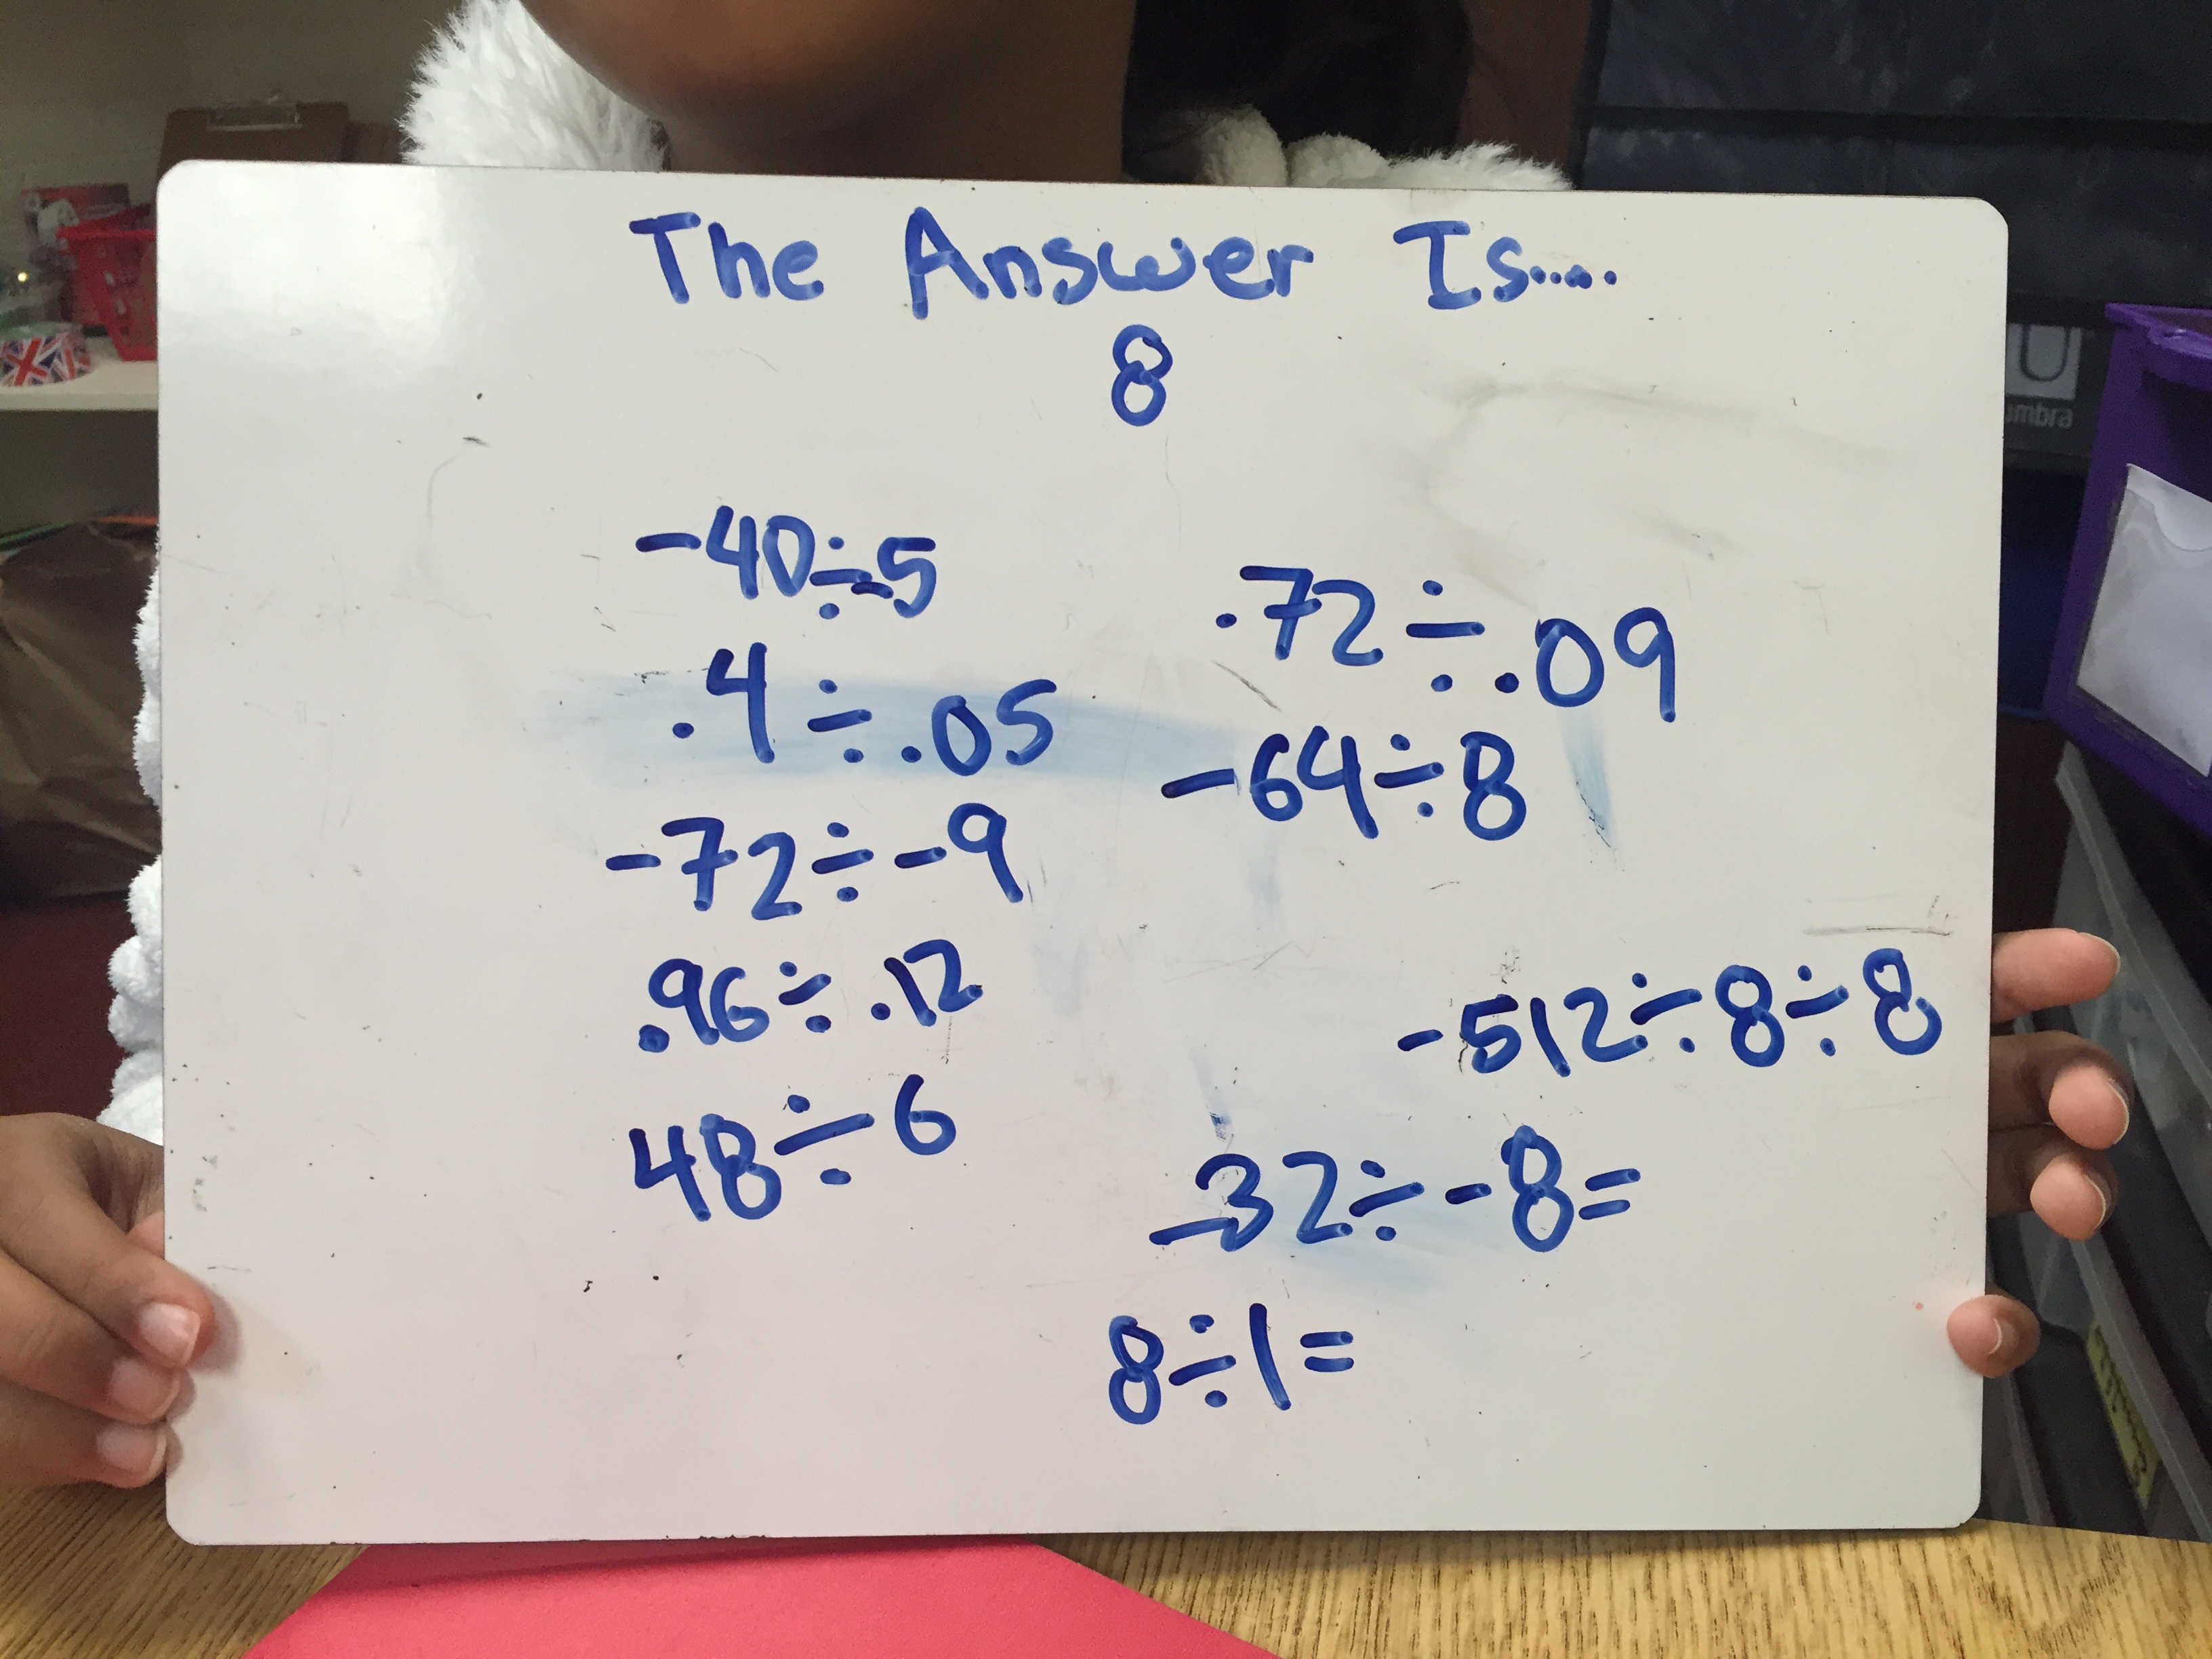 The Answer Is.....
8
-40÷-5
.4÷.05
-72÷-9
.96÷.12
48÷6
.72÷.09
-64÷8
-512÷8÷8
-32÷-8=
8÷1=
umbra